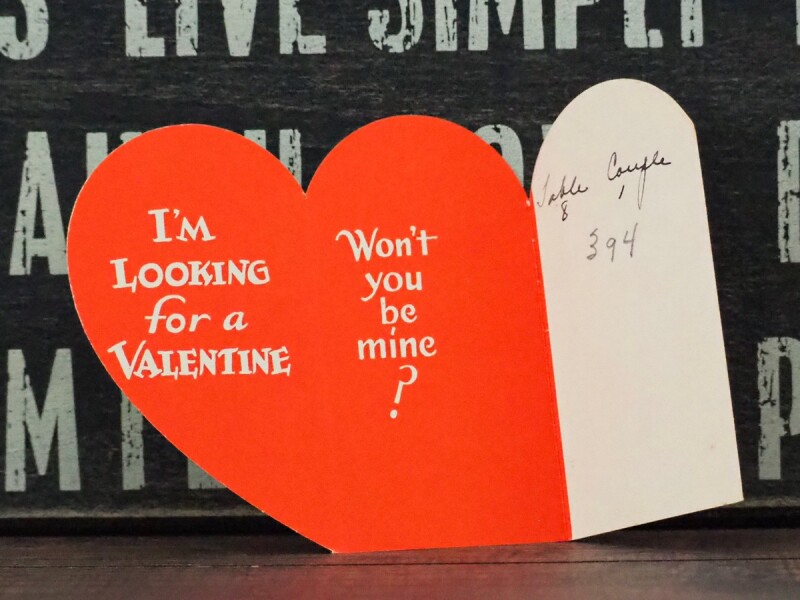 LIVE SIMPLY
I'M
LOOKING
for a
VALENTINE
Won't
you
be
mine
?
Table Couple
8 1
394